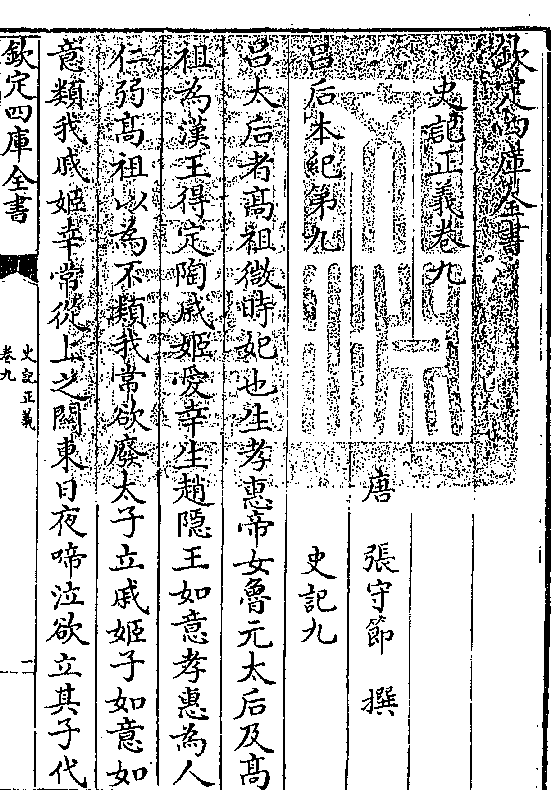 欽定四庫全書
史記正義卷九
唐 張守節 撰
呂后本紀第九 史記九
呂太后者高祖微時妃也生孝惠帝女魯元太后及高
祖為漢王得定陶戚姬愛幸生趙隱王如意孝惠為人
仁弱高祖以為不類我常欲廢太子立戚姬子如意如
意類我戚姬幸常從上之關東日夜啼泣欲立其子代
欽定四庫全書
史記正義
卷九
一